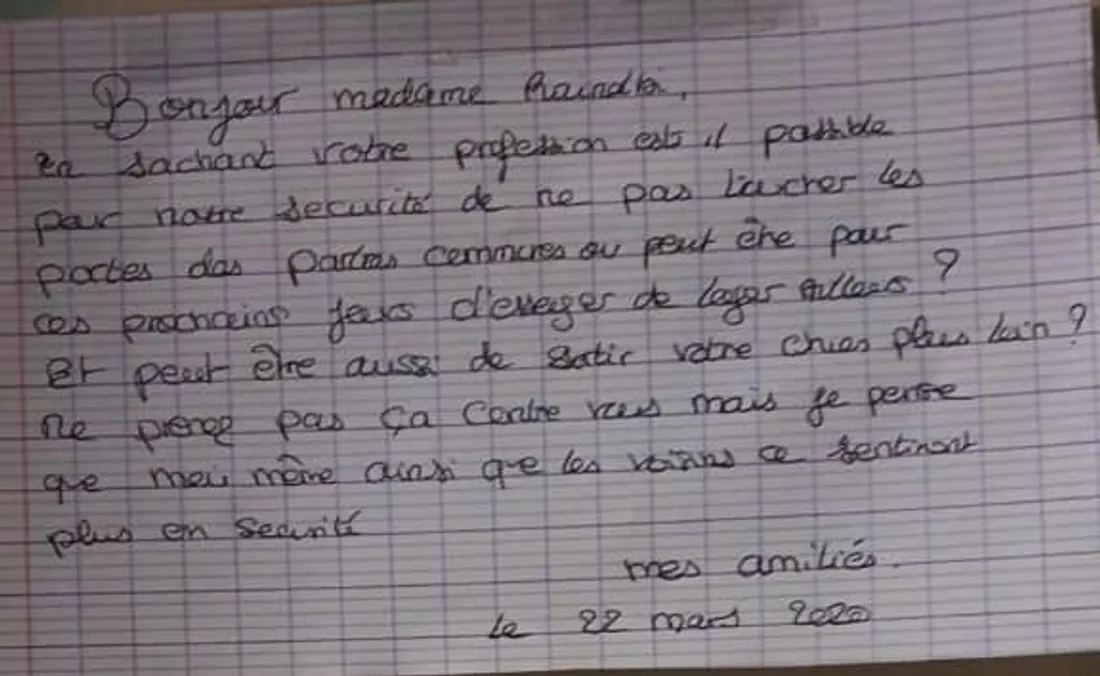 Bonjour madame
en sachant votre profession est il possible
pour notre securité de ne pas toucher les
portes des parties communes ou peut être pour
ces prochains jours d'essayer de loger ailleurs ?
Et peut être aussi de sortir votre chien plus loin ?
ne prenez pas ça contre vous mais je pense
que moi même ainsi que les voisins ce sentiront
plus en securité
mes amitiés.
le 22 mars 2020